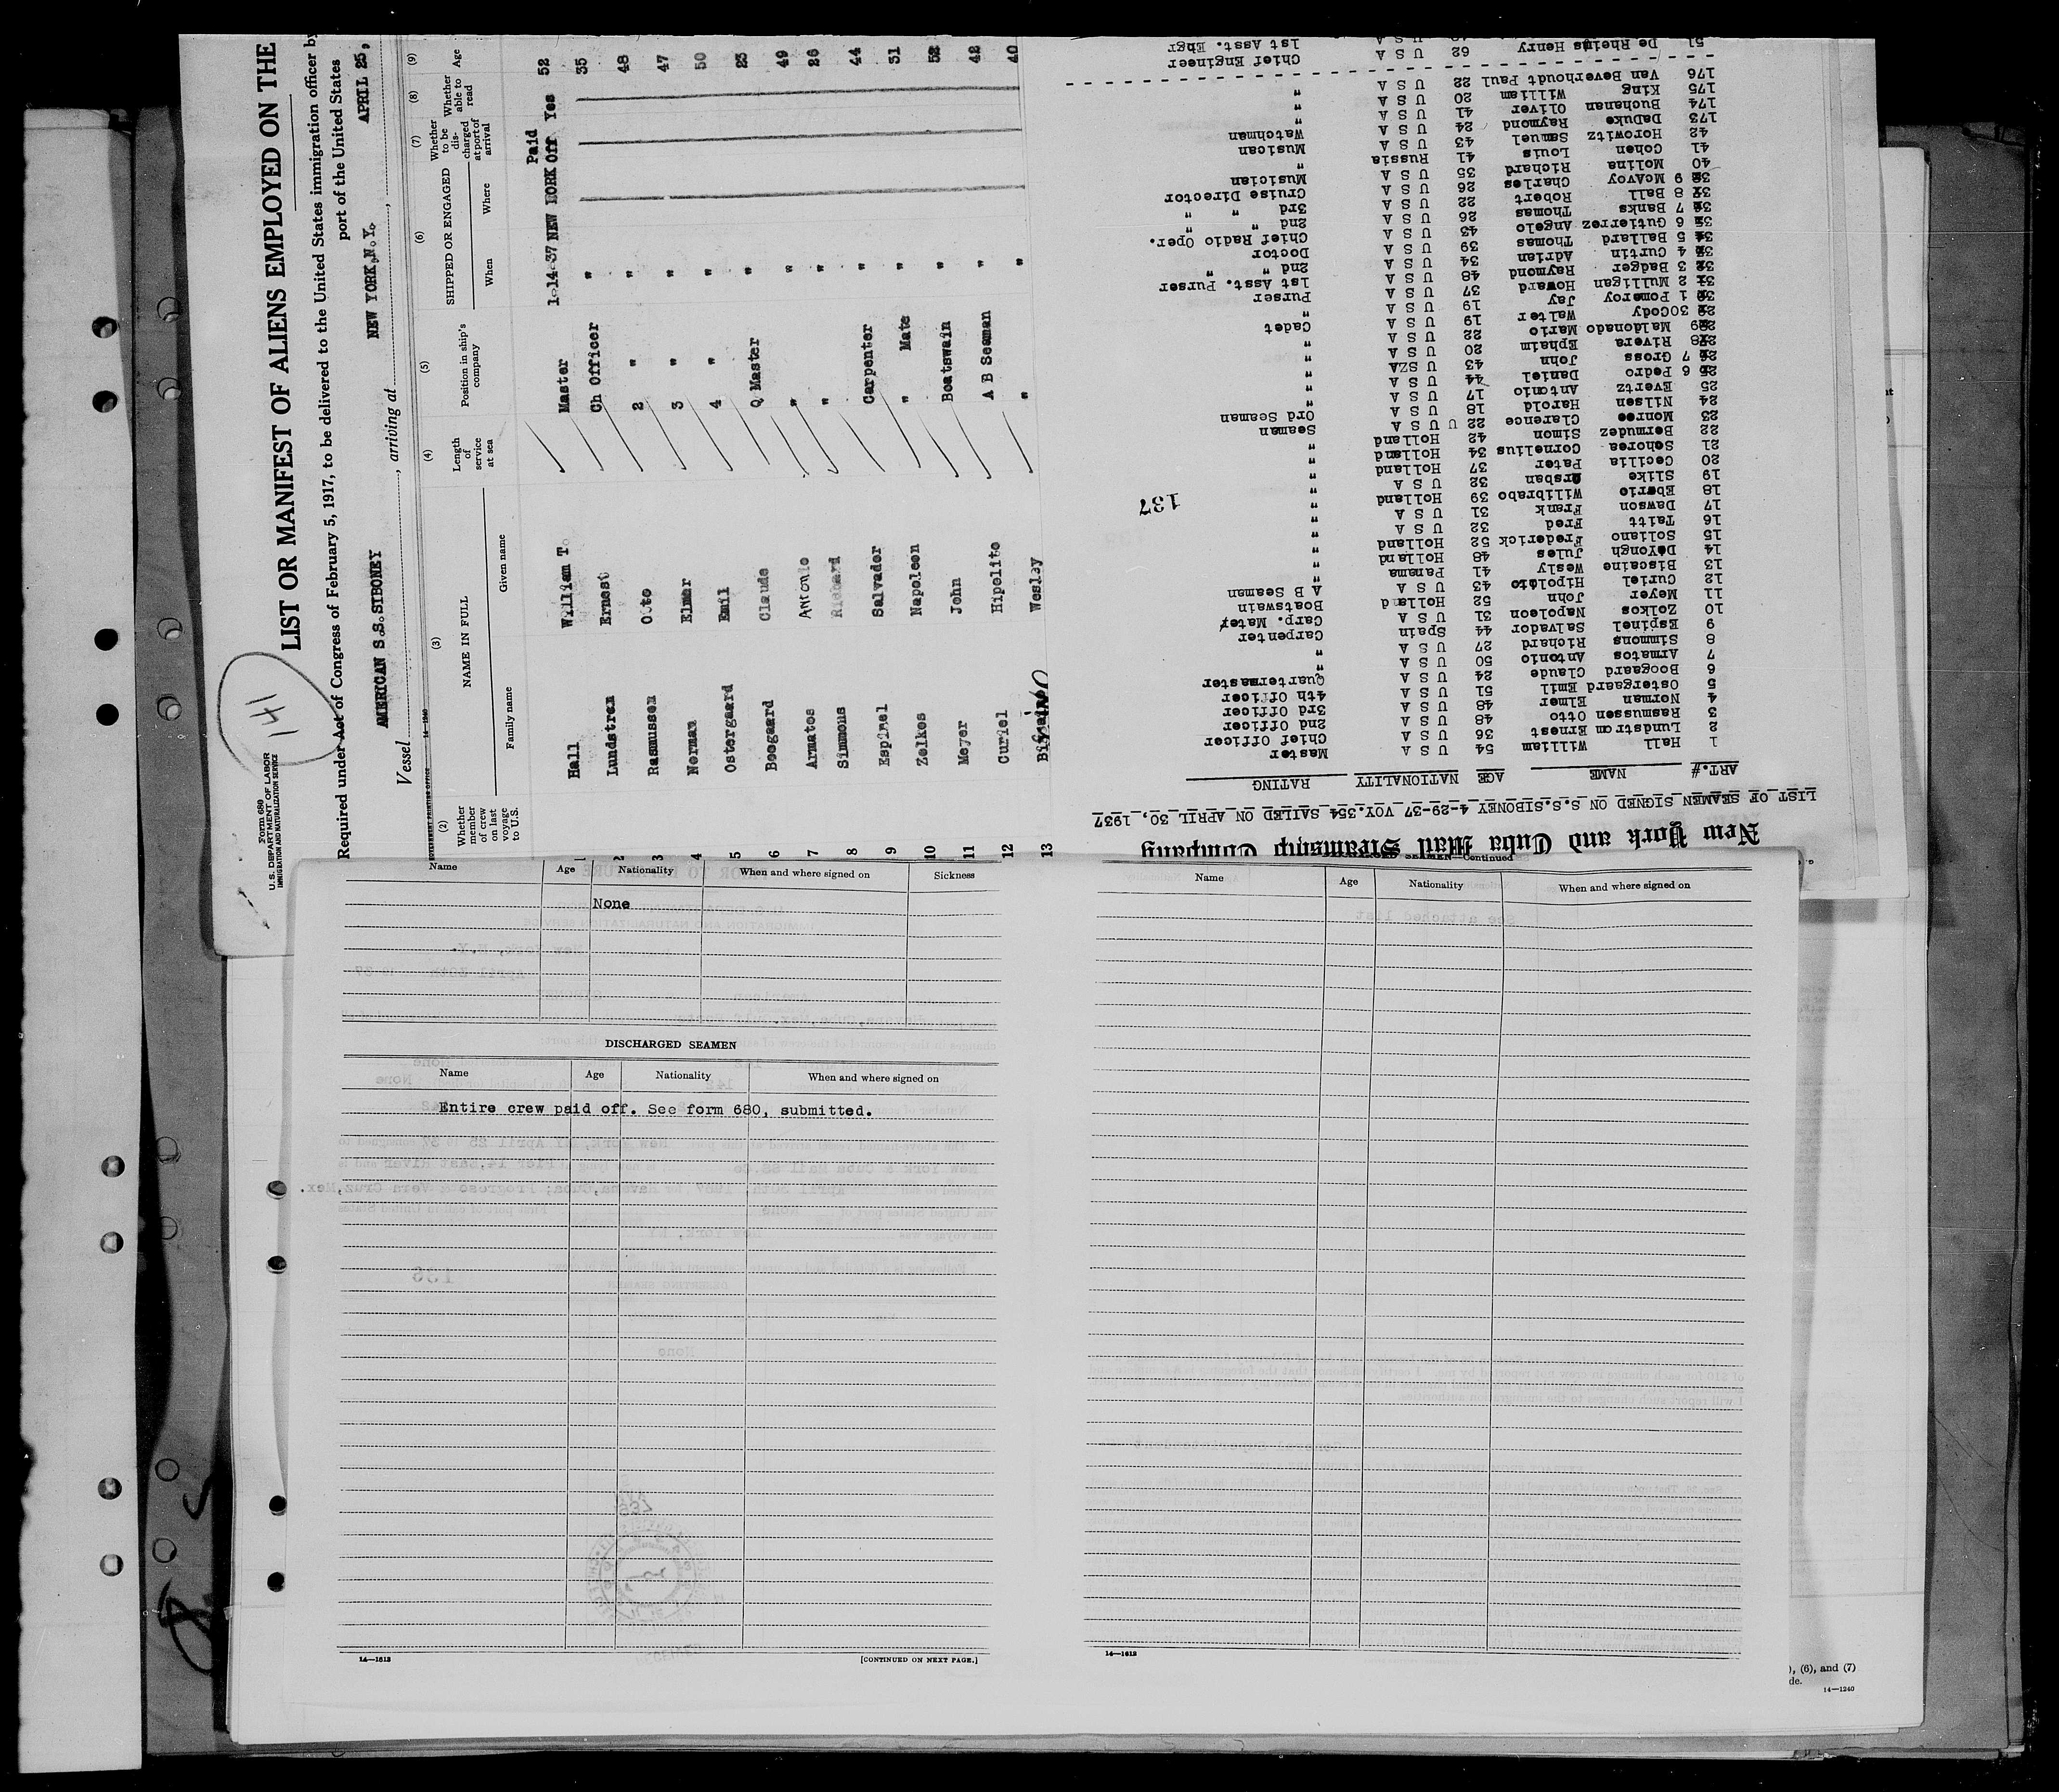 Form 680
U.S. DEPARTMENT OF LABOR
IMMIGRATION AND NATURALIZATION SERVICE
141
LIST OR MANIFEST OF ALIENS EMPLOYED ON THE
Required under Act of Congress of February 5, 1917, to be delivered to the United States immigration officer by
port of the United States
Vessel AMERICAN S.S.SIBONEY, arriving at NEW YORK,N.Y., APRIL 25,
(2) (3) (4) (5) (6) (7) (8) (9)
Whether member of crew on last voyage to U.S. NAME IN FULL Family name Given name Length of service at sea Position in ship's company SHIPPED OR ENGAGED When Where Whether to be discharged at port of arrival Whether able to read Age
1 Hall William T. Master 1-14-37 NEW YORK Paid Off Yes 52
2 Lundstrem Ernest Ch Officer " 35
3 Rasmussen Otto 2 " " 48
4 Norman Elmer 3 " " 47
5 Ostergaard Emil 4 " " 50
6 Boogaard Claude Q Master " 23
7 Armatos Antonio " " 49
8 Simmons Richard " " 26
9 Espinel Salvador Carpenter " 44
10 Zelkos Napoleon " Mate " 31
11 Meyer John Boatswain " 52
12 Curiel Hipolito A B Seaman " 42
13 Wesley " " 40
New York and Cuba Mail Steamship Company
LIST OF SEAMEN SIGNED ON S.S.SIBONEY 4-29-37 VOY.354 SAILED ON APRIL 30, 1937
ART.# NAME AGE NATIONALITY RATING
1 Hall William 54 U S A Master
2 Lundstrom Ernest 36 U S A Chief Officer
3 Rasmussen Otto 48 U S A 2nd Officer
4 Norman Elmer 48 U S A 3rd Officer
5 Ostergaard Emil 51 U S A 4th Officer
6 Boogaard Claude 24 U S A Quartermaster
7 Armatos Antonio 50 U S A "
8 Simmons Richard 27 U S A "
9 Espinel Salvador 44 Spain Carpenter
10 Zolkos Napoleon 31 U S A Carp. Mate
11 Meyer John 52 Holland Boatswain
12 Curiel Hipolato 43 U S A A B Seaman
13 Biscaine Wesly 41 Panama "
14 DeYongh Jules 48 Holland "
15 Soliano Frederick 52 Holland "
16 Taitt Fred 32 U S A "
17 Dawson Frank 31 U S A "
18 Eberio Willibrabo 39 Holland "
19 Slike Orsban 32 U S A "
20 Cecilia Pater 37 Holland "
21 Schorea Cornelius 34 Holland "
22 Bermudez Simon 42 Holland "
23 Monroe Clarence 22 U U S A Seaman
24 Nilsen Harold 18 U S A Ord Seaman
25 Evertz Antonio 17 U S A "
26 Pedro Daniel 44 U S A "
27 Gross John 43 USZA "
28 Rivera Ephaim 20 U S A "
29 Maldonado Mario 22 U S A "
30 Cody Walter 19 U S A Cadet
31 Pomeroy Jay 19 U S A "
32 Mulligan Howard 37 U S A Purser
33 Badger Raymond 48 U S A 1st Asst. Purser
34 Curtin Adrian 34 U S A 2nd " "
35 Ballard Thomas 39 U S A Doctor
36 Gutierrez Angelo 43 U S A Chief Radio Oper.
37 Banks Thomas 26 U S A 2nd " "
38 Ball Robert 22 U S A 3rd " "
39 McAvoy Charles 26 U S A Cruise Director
40 Molina Richard 35 U S A Musician
41 Cohen Louis 41 Russia "
42 Horowitz Samuel 43 U S A Musican
173 DaDuke Raymond 24 U S A Watchman
174 Buchanan Oliver 41 U S A "
175 King William 20 U S A "
176 Van Beverhoudt Paul 22 U S A "
51 De Rheims Henry 62 U S A Chief Engineer
1st Asst. Engr
137
Name Age Nationality When and where signed on Sickness
None
DISCHARGED SEAMEN
Name Age Nationality When and where signed on
Entire crew paid off. See form 680, submitted.
14—1613
[CONTINUED ON NEXT PAGE.]
SEAMEN—Continued
Name Age Nationality When and where signed on
14—1613
), (6), and (7)
de.
14—1240